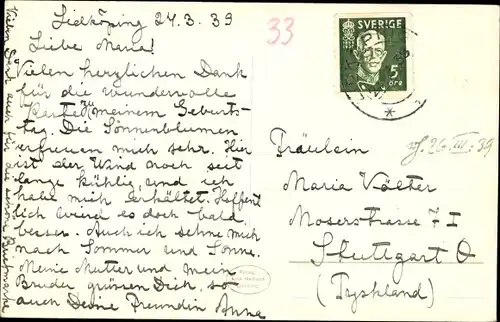 Lidköping 24.3.39
Liebe Maria!
Vielen herzlichen Dank
für die wundervolle
Karte zu meinem Geburts-
tag. Die Sonnenblumen
erfreuen mich sehr. Hier
ist der Wind noch seit
lange kühlig, und ich
habe mich erkältet. Hoffent
lich wird es doch bald
besser. Auch ich sehne mich
nach Sommer und Sonne.
Meine Mutter und mein
Bruder grüssen Dich, so
auch Deine Freundin Anna
Vielen Dank auch für die schöne Briefmarke
33
SVERIGE
5
ÖRE
Fräulein
26.III.39
Maria Völter
Moserstrasse 7 I
Stuttgart O
(Tyskland)